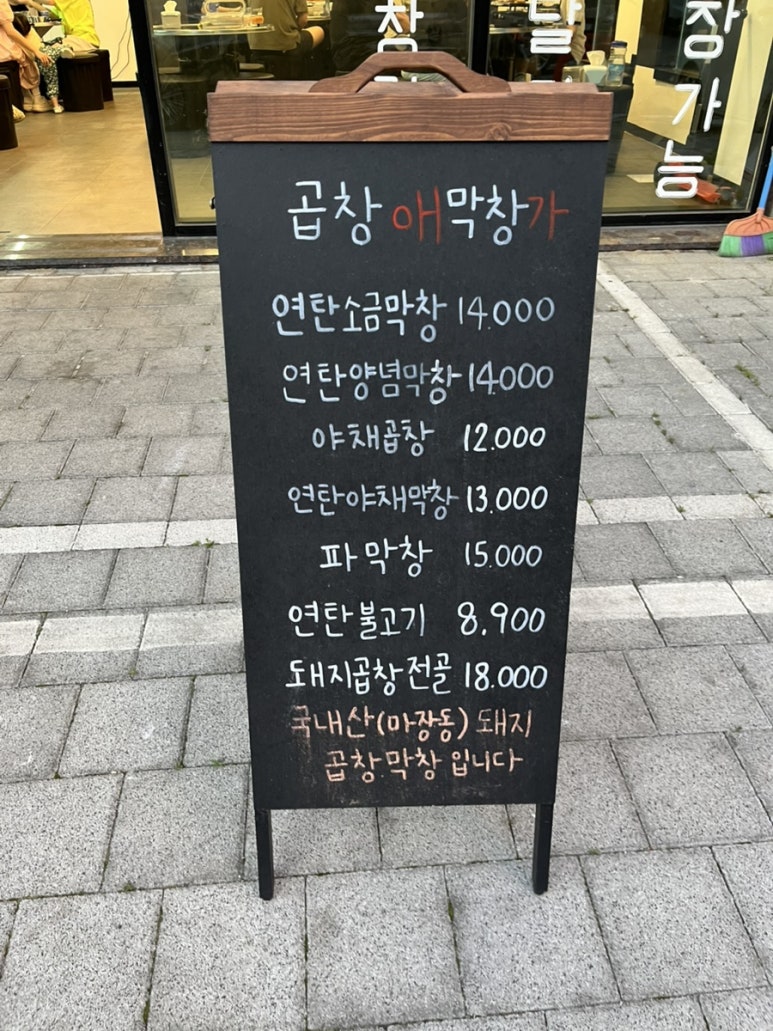 곱창애막창가
연탄소금막창 14.000
연탄양념막창 14.000
야채곱창 12.000
연탄야채막창 13.000
파막창 15.000
연탄불고기 8.900
돼지곱창전골 18.000
국내산(마장동) 돼지
곱창.막창 입니다
장가능